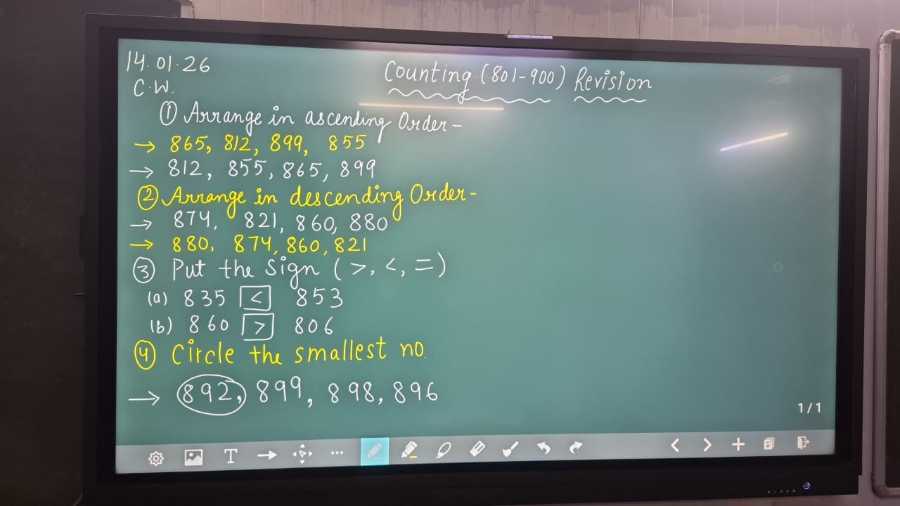 14.01.26
Counting (801-900) Revision
C.W.
① Arrange in ascending Order-
→ 865, 812, 899, 855
→ 812, 855, 865, 899
② Arrange in descending Order-
→ 874, 821, 860, 880
→ 880, 874, 860, 821
③ Put the Sign (>, <, =)
(a) 835 < 853
(b) 860 > 806
④ Circle the smallest no.
→ 892, 899, 898, 896
1/1
T